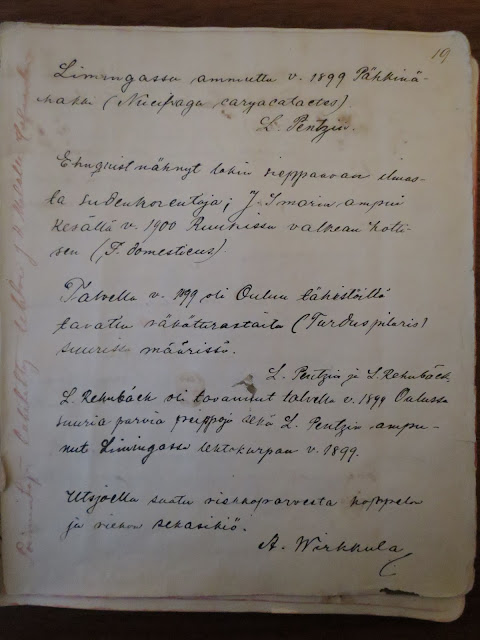 19
Limingassa ammuttu v. 1899 Pähkinä-
hakki (Nucifraga caryacatactes)
L. Pentzin.
Ehnquist nähnyt lokin sieppaavan ilmas-
ta sudenkorentoja; J. Smarin ampui
kesällä v. 1900 valkean kotti-
sen (F. domesticus)
Talvella v. 1899 oli Oulun lähistöillä
tavattu räkäturastaita (Turdus pilaris)
suurissa määrissä.
L. Pentzin ja L. Rehnbäck.
L. Rehnbäck oli tavannut talvella v. 1899 Oulussa
suuria parvia peippoja sekä L. Pentzin ampu-
nut Limingassa lehtokurpan v. 1899.
Utsjoella saatu riekkoparvesta koppelon
ja riekon sekasikiö.
A. Wirkkula